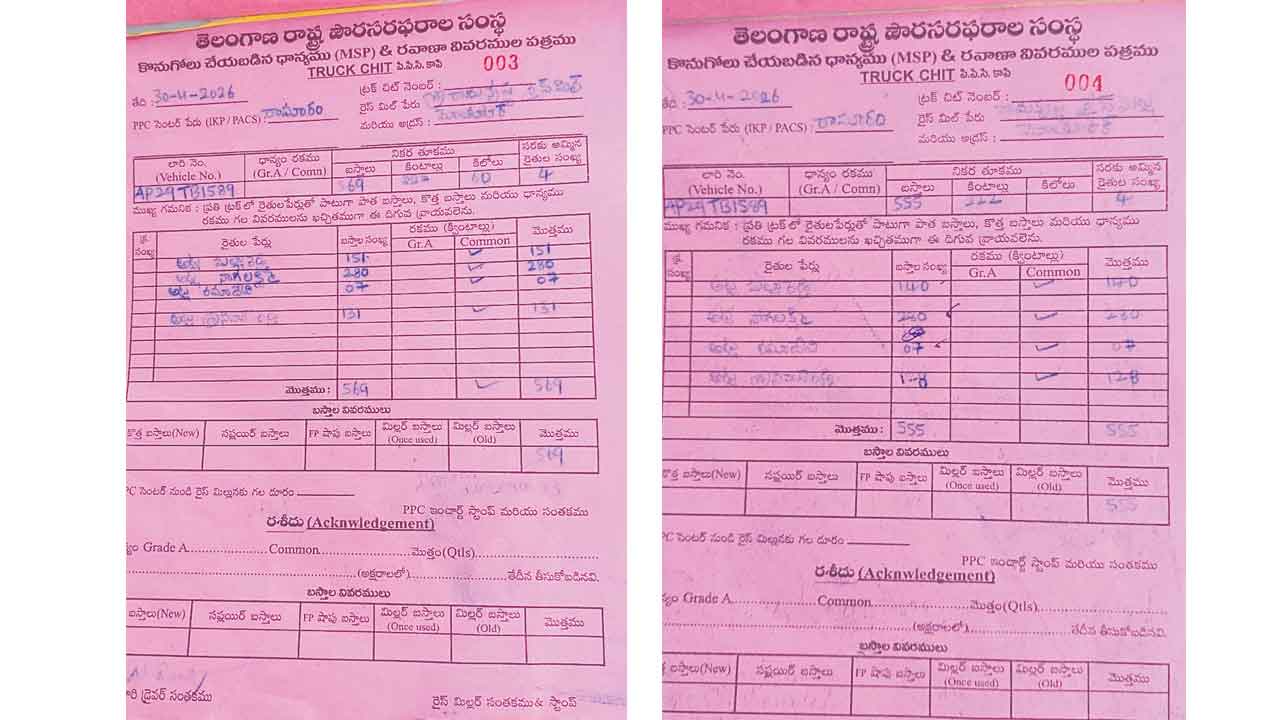 తెలంగాణ రాష్ట్ర పౌరసరఫరాల సంస్థ
కొనుగోలు చేయబడిన ధాన్యము (MSP) & రవాణా వివరముల పత్రము
TRUCK CHIT పి.పి.సి. కాపి 003
తేది : 30-4-2026 ట్రక్ చిట్ నెంబర్ :
రైస్ మిల్ పేరు
PPC సెంటర్ పేరు (IKP / PACS) : రామారం మరియు అడ్రస్ :
లారి నెం. (Vehicle No.) ధాన్యం రకము (Gr.A / Comn) నికర తూకము బస్తాలు కింటాల్లు కిలోలు సరకు అమ్మిన రైతుల సంఖ్య
AP29TB1589 569 60 4
ముఖ్య గమనిక : ప్రతి ట్రక్‌లో రైతులపేర్లుతో పాటుగా పాత బస్తాలు, కొత్త బస్తాలు మరియు ధాన్యము
రకము గల వివరములను ఖచ్చితముగా ఈ దిగువ వ్రాయవలెను.
క్ర. సంఖ్య రైతుల పేర్లు బస్తాల సంఖ్య రకము (క్వింటాల్లు) Gr.A Common మొత్తము
151 ✓ 151
నాగలక్ష్మి 280 ✓ 280
07 ✓ 07
131 ✓ 131
మొత్తము : 569 ✓ 569
బస్తాల వివరములు
కొత్త బస్తాలు(New) సప్లయిర్ బస్తాలు FP షాపు బస్తాలు మిల్లర్ బస్తాలు (Once used) మిల్లర్ బస్తాలు (Old) మొత్తము
569
PC సెంటర్ నుండి రైస్ మిల్లునకు గల దూరం
PPC ఇంచార్జ్ స్టాంప్ మరియు సంతకము
రశీదు (Acknwledgement)
యం Grade A Common మొత్తం(Qtls)
(అక్షరాలలో) తేదీన తీసుకోబడినవి.
బస్తాల వివరములు
బస్తాలు(New) సప్లయిర్ బస్తాలు FP షాపు బస్తాలు మిల్లర్ బస్తాలు (Once used) మిల్లర్ బస్తాలు (Old) మొత్తము
రి డ్రైవర్ సంతకము రైస్ మిల్లర్ సంతకము & స్టాంప్
తెలంగాణ రాష్ట్ర పౌరసరఫరాల సంస్థ
కొనుగోలు చేయబడిన ధాన్యము (MSP) & రవాణా వివరముల పత్రము
TRUCK CHIT పి.పి.సి. కాపి
తేది : 30-4-2026 ట్రక్ చిట్ నెంబర్ : 004
రైస్ మిల్ పేరు
PPC సెంటర్ పేరు (IKP / PACS) : రామారం
మరియు అడ్రస్ :
లారి నెం. (Vehicle No.) ధాన్యం రకము (Gr.A / Comn) నికర తూకము బస్తాలు కింటాల్లు కిలోలు సరకు అమ్మిన రైతుల సంఖ్య
AP29TB1589 555 222 4
ముఖ్య గమనిక : ప్రతి ట్రక్‌లో రైతులపేర్లుతో పాటుగా పాత బస్తాలు, కొత్త బస్తాలు మరియు ధాన్యము
రకము గల వివరములను ఖచ్చితముగా ఈ దిగువ వ్రాయవలెను.
క్ర. సంఖ్య రైతుల పేర్లు బస్తాల సంఖ్య రకము (క్వింటాల్లు) Gr.A Common మొత్తము
140 ✓ 140
నాగలక్ష్మి 280 ✓ 280
07 ✓ 07
128 ✓ 128
మొత్తము : 555 555
బస్తాల వివరములు
కొత్త బస్తాలు(New) సప్లయిర్ బస్తాలు FP షాపు బస్తాలు మిల్లర్ బస్తాలు (Once used) మిల్లర్ బస్తాలు (Old) మొత్తము
555
PC సెంటర్ నుండి రైస్ మిల్లునకు గల దూరం
PPC ఇంచార్జ్ స్టాంప్ మరియు సంతకము
రశీదు (Acknwledgement)
యం Grade A Common మొత్తం(Qtls)
(అక్షరాలలో) తేదీన తీసుకోబడినవి.
బస్తాల వివరములు
స్తాలు(New) సప్లయిర్ బస్తాలు FP షాపు బస్తాలు మిల్లర్ బస్తాలు (Once used) మిల్లర్ బస్తాలు (Old) మొత్తము